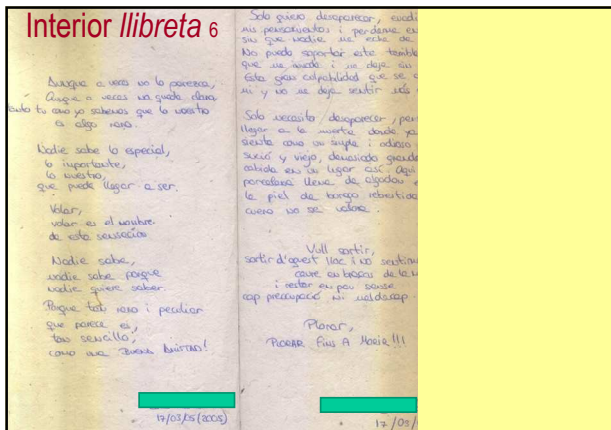 Interior llibreta 6
Aunque a veces no lo parezca,
Aunque a veces no quede claro
tanto tu como yo sabemos que lo nuestro
es algo raro.
Nadie sabe lo especial,
lo importante,
lo nuestro,
que puede llegar a ser.
Volar,
volar es el nombre
de esta sensación
Nadie sabe,
nadie sabe porque
nadie quiere saber.
Porque tan raro i peculiar
que parece es,
tan sencillo,
como una BUENA AMISTAD!
17/03/05 (2005)
Solo quiero desaparecer, evadi
mis pensamientos i perderme en
sin que nadie me eche de
No puedo soportar este temble
que me invade i me deja sin
Esta gran culpabilidad que se a
mi y no me deja sentir más
Solo necesito desaparecer, per
llegar a la muerte donde ya
siente como un simple i odioso
sucio y viejo, demasiado grande
cabida en un lugar así. Aquí
porcelana llena de algodón
la piel de borrego rebestida
cuero no se valora.
Vull sortir,
sortir d'aquest lloc i no sentirme
caure en braços de la m
i restar en pau sense
cap preocupació ni maldecap.
Plorar,
PLORAR FINS A MORIR!!!
17/03/